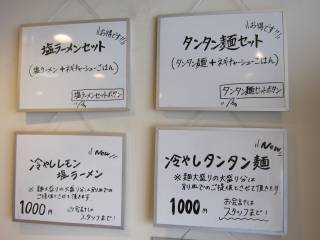 お得です!!
塩ラーメンセット
(塩ラーメン+ネギチャーシューごはん)
塩ラーメンセットボタン
お得です!!
タンタン麺セット
(タンタン麺+ネギチャーシューごはん)
タンタン麺セットボタン
New
冷やしレモン
塩ラーメン
※麺大盛りの大盛り分は
別皿でのご提供とさせて頂きます
1000円
お会計は
スタッフまで!
New
冷やしタンタン麺
※麺大盛りの大盛り分は
別皿でのご提供とさせて頂きます
1000円
お会計は
スタッフまで!